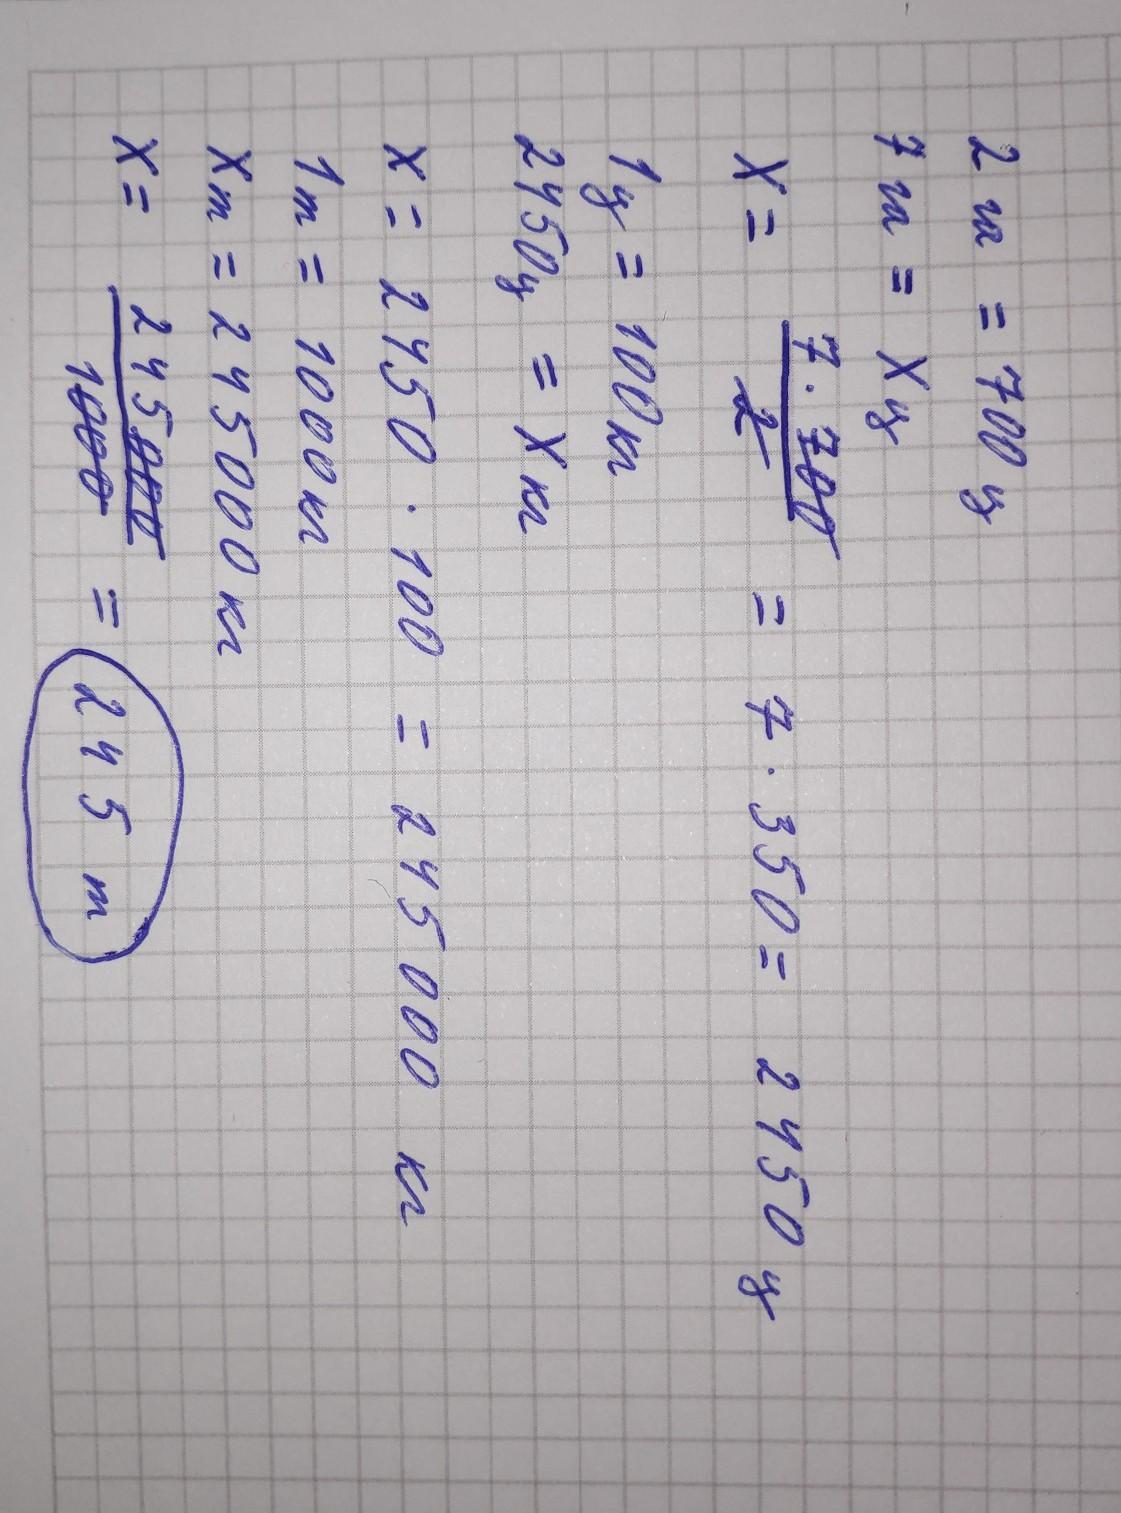 2 ш = 700 ц
7 ш = X ц
X = 7 · 700 / 2 = 7 · 350 = 2450 ц
1 ц = 100 кг
2450 ц = X кг
X = 2450 · 100 = 245000 кг
1 т = 1000 кг
X т = 245000 кг
X = 245000 / 1000 = 245 т